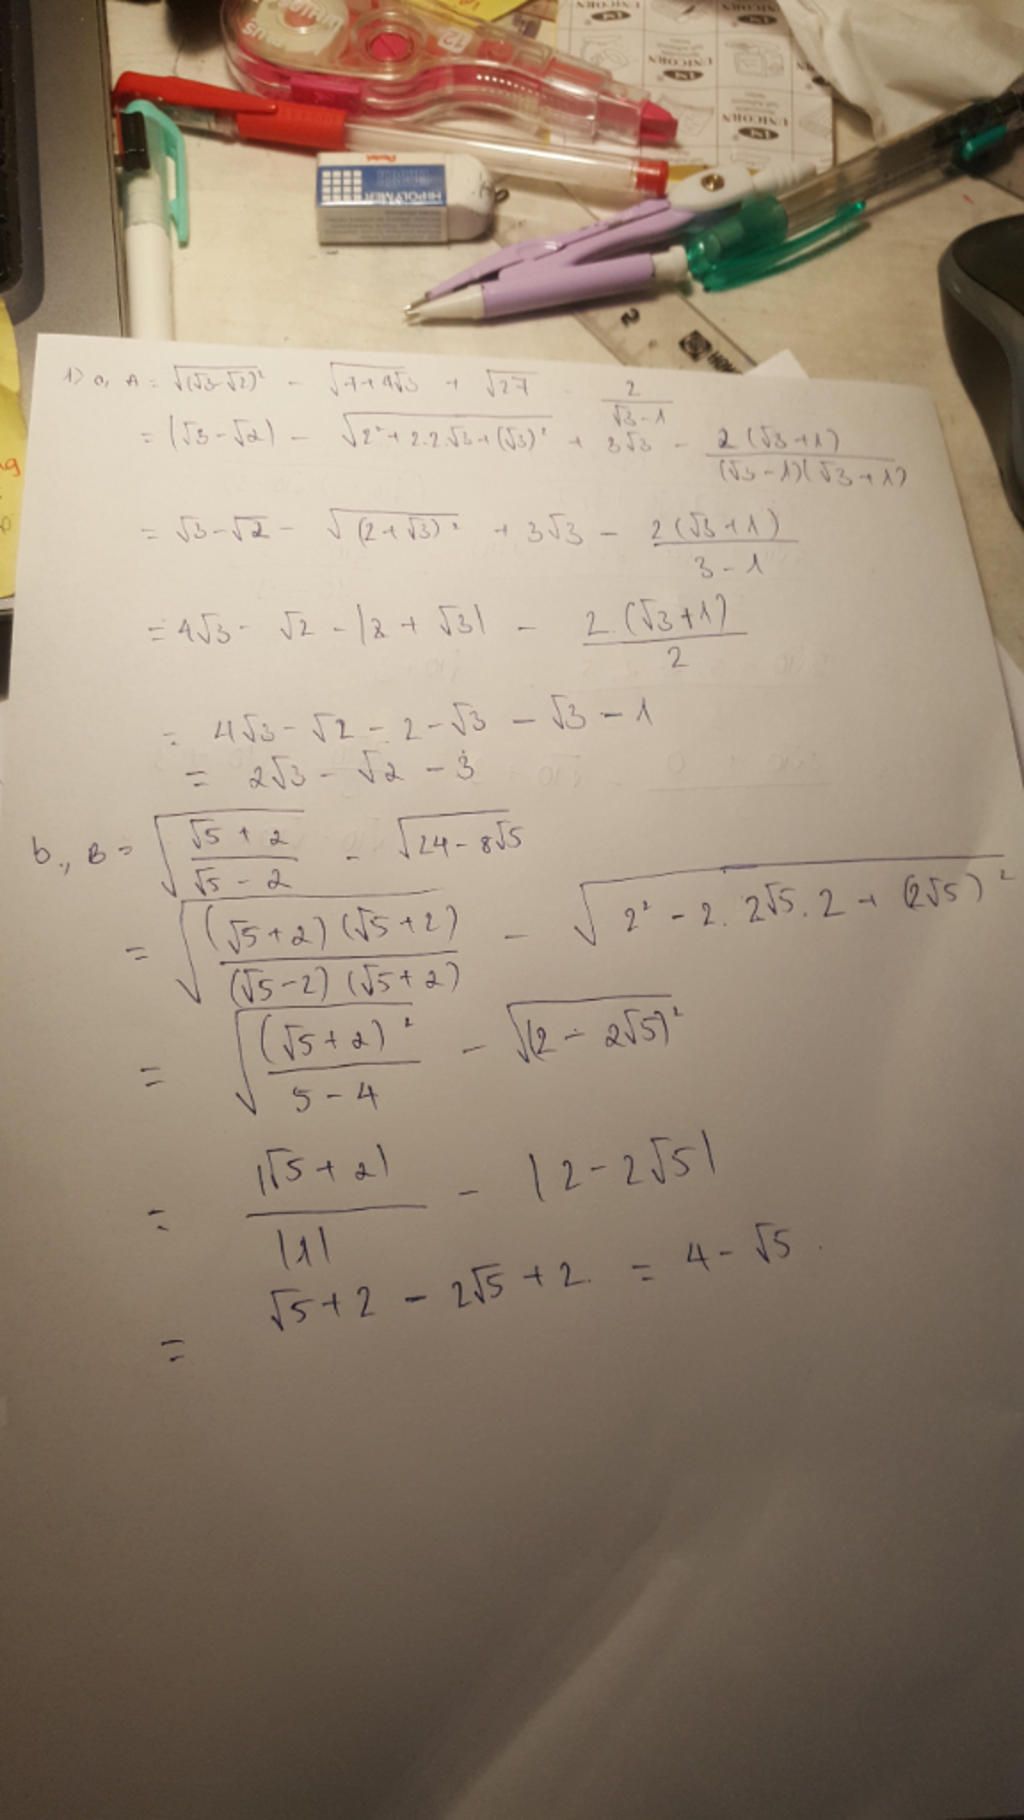 PLUS
UNICORN
UNICORN
UNICORN
UNICORN
Pentel
HI-POLYMER
2
1) a, A = √(√3-√2)² - √7+4√3 + √27 - 2/(√3-1)
= |√3-√2| - √2²+2.2√3+(√3)² + 3√3 - 2(√3+1)/(√3-1)(√3+1)
= √3-√2 - √(2+√3)² + 3√3 - 2(√3+1)/3-1
= 4√3 - √2 - |2+√3| - 2.(√3+1)/2
= 4√3 - √2 - 2 - √3 - √3 - 1
= 2√3 - √2 - 3
b, B = √(√5+2)/(√5-2) - √24-8√5
= √(√5+2)(√5+2)/(√5-2)(√5+2) - √2²-2.2√5.2+(2√5)²
= √(√5+2)²/5-4 - √(2-2√5)²
= |√5+2|/|1| - |2-2√5|
= √5+2 - 2√5+2. = 4-√5.